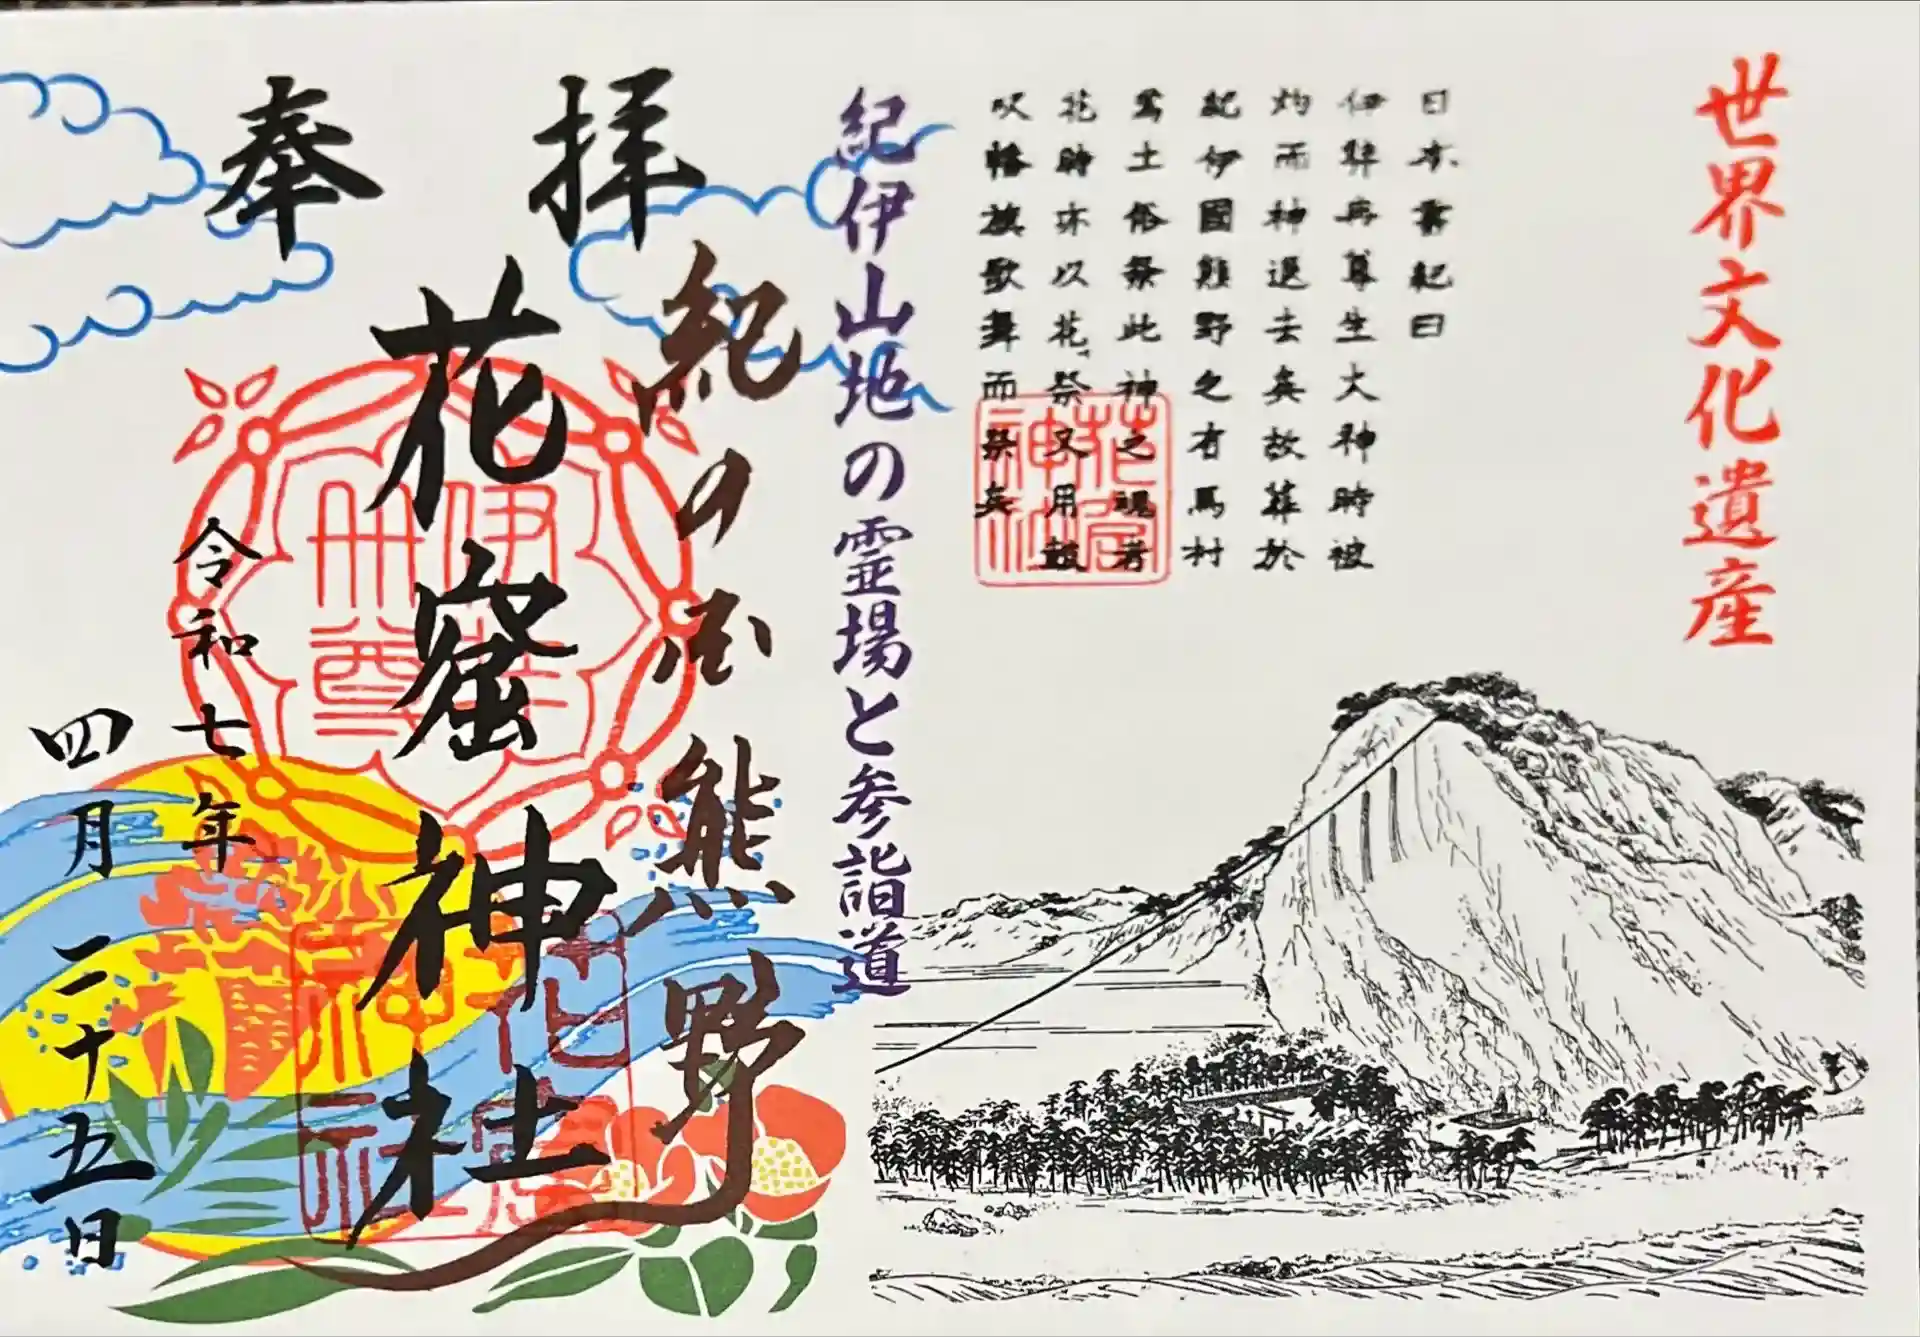 世界文化遺産
日本書紀曰
伊弉冉尊生火神時被
灼而神退去矣故葬於
紀伊國熊野之有馬村
焉土俗祭此神之魂者
花時亦以花祭又用鼓
吹幡旗歌舞而祭矣
花窟神社
紀伊山地の霊場と参詣道
奉拝
紀の国熊野
花窟神社
伊弉冊尊
花窟神社
令和七年
四月二十五日